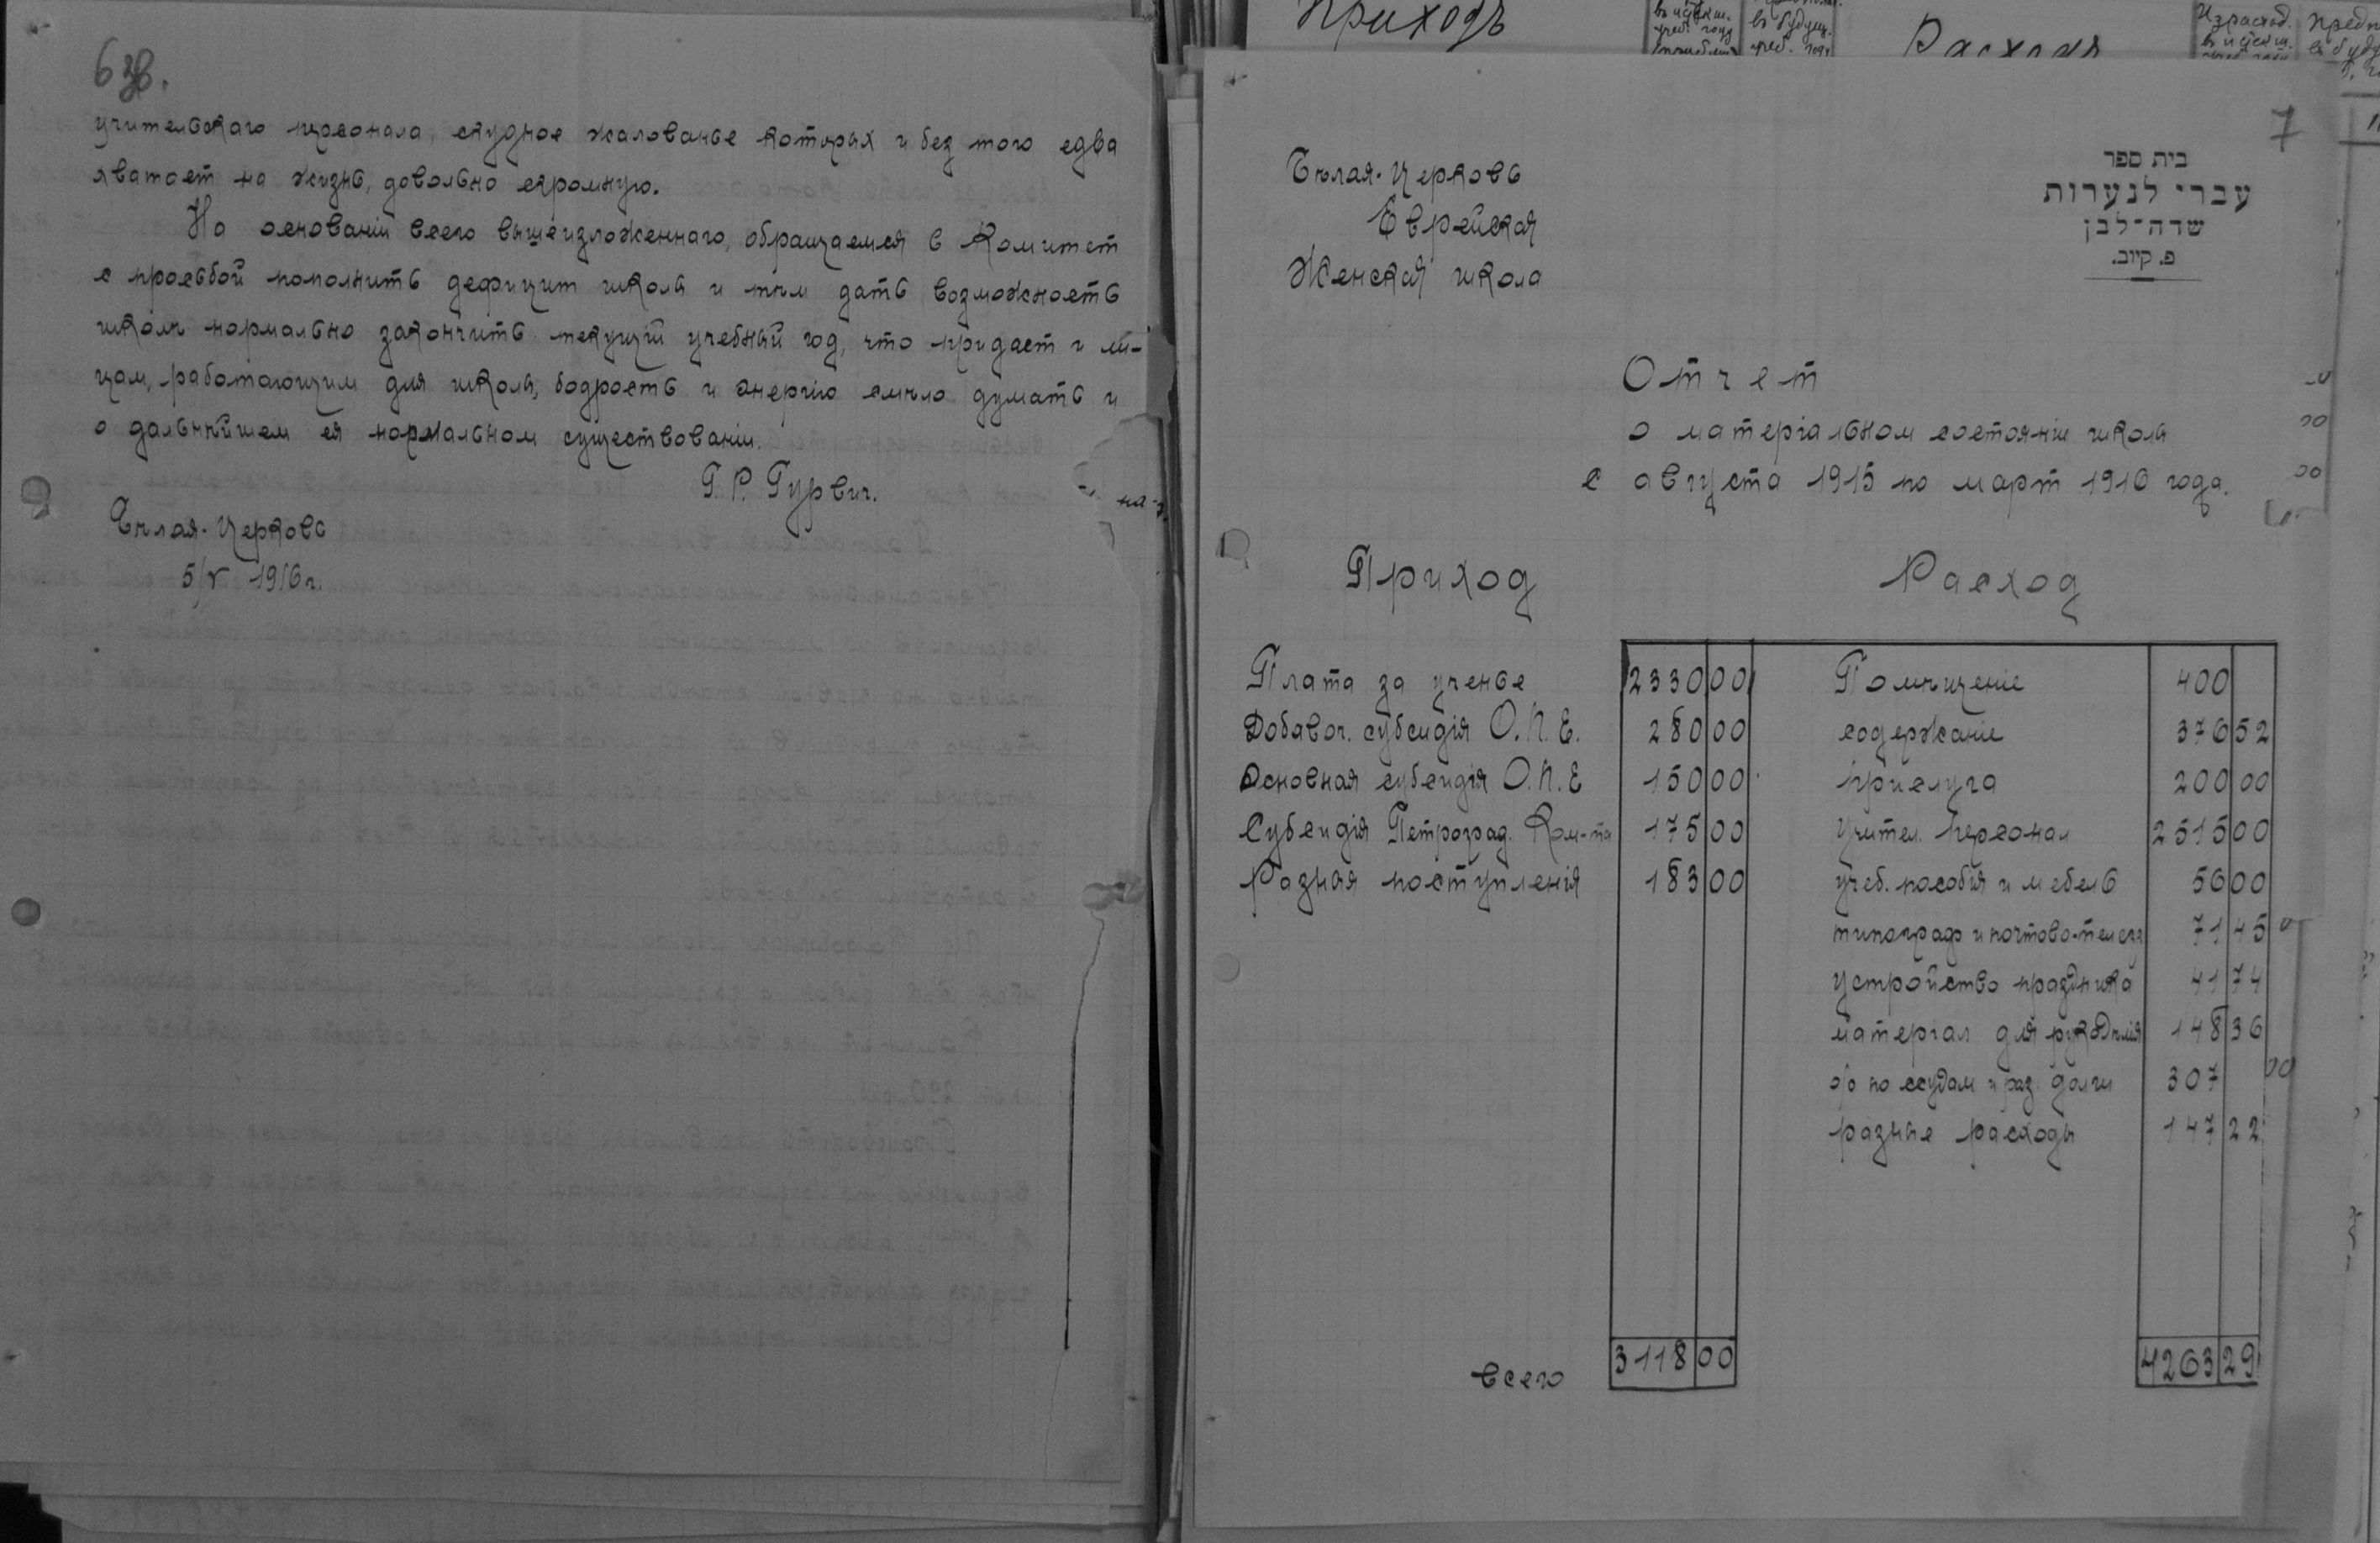 6 зв.
учительскаго персонала, скудное жалованье которых и без того едва
хватает на жизнь, довольно скромную.
На основаніи всего вышеизложеннаго, обращаемся в Комитет
с просьбой пополнить дефицит школы и тѣм дать возможность
школѣ нормально закончить текущій учебный год, что придаст и ли-
цам, работающим для школы, бодрость и энергію смѣло думать и
о дальнѣйшем ея нормальном существованіи.
Г. Р. Гурвич.
Бѣлая-Церковь
5/V 1916 г.
Приходъ
Расходъ
7
Бѣлая-Церковь
Еврейская
Женская школа
בית ספר
עברי לנערות
שדה־לבן
פ. קיוב.
Отчет
о матеріальном состояніи школы
с августа 1915 по март 1916 года.
Приход Расход
Плата за ученье 2330 00 Помѣщеніе 400
Добавоч. субсидія О.П.Е. 280 00 содержаніе 376 52
Основная субсидія О.П.Е 150 00 прислуга 200 00
Субсидія Петроград. Ком-та 175 00 учител. персонал 2515 00
Разныя поступленія 183 00 учеб. пособія и мебель 56 00
типограф и почтово-телегр 71 45
устройство праздника 41 74
матеріал для рукодѣлія 148 36
о/о по ссудам и раз. долги 307
разные расходы 147 22
всего 3118 00 4263 29